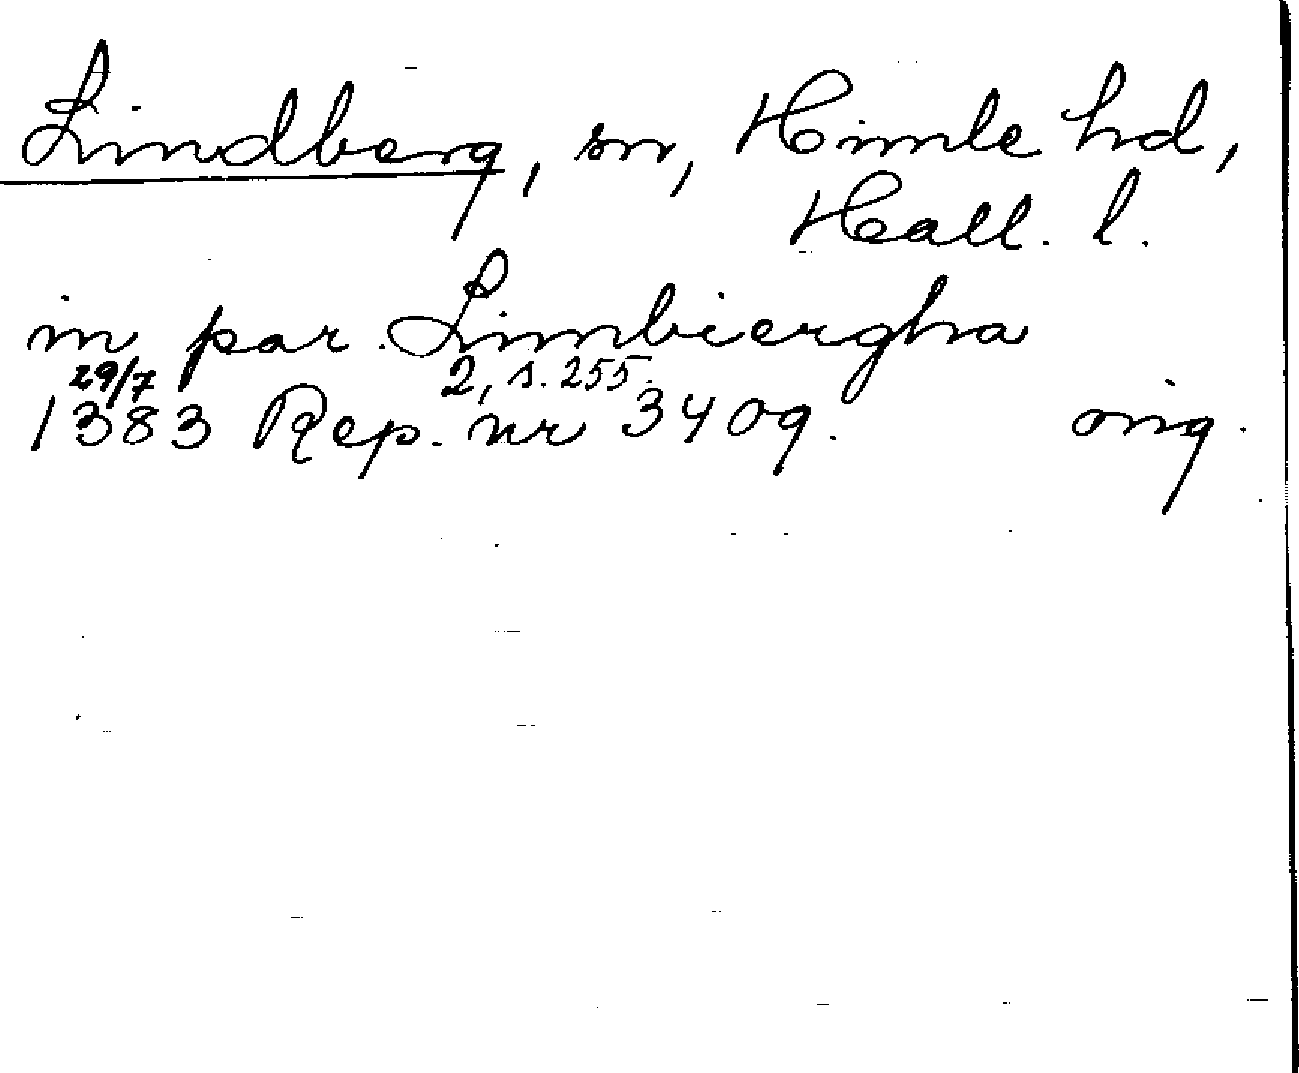 Lindberg, sn, Himle hd,
Hall. l.
in par. Limbiergha
29/7 2, s. 255.
1383 Rep. nr 3409. orig.